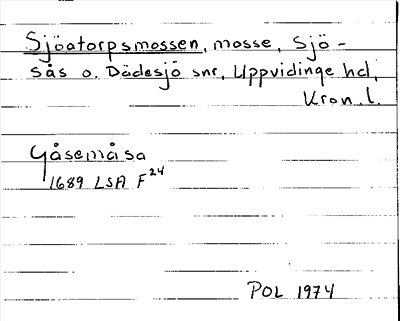 Sjöatorpsmossen, mosse, Sjö-
sås o. Dädesjö snr, Uppvidinge hd,
Kron. l.
Gåsemåsa
1689 LSA F²⁴
POL 1974